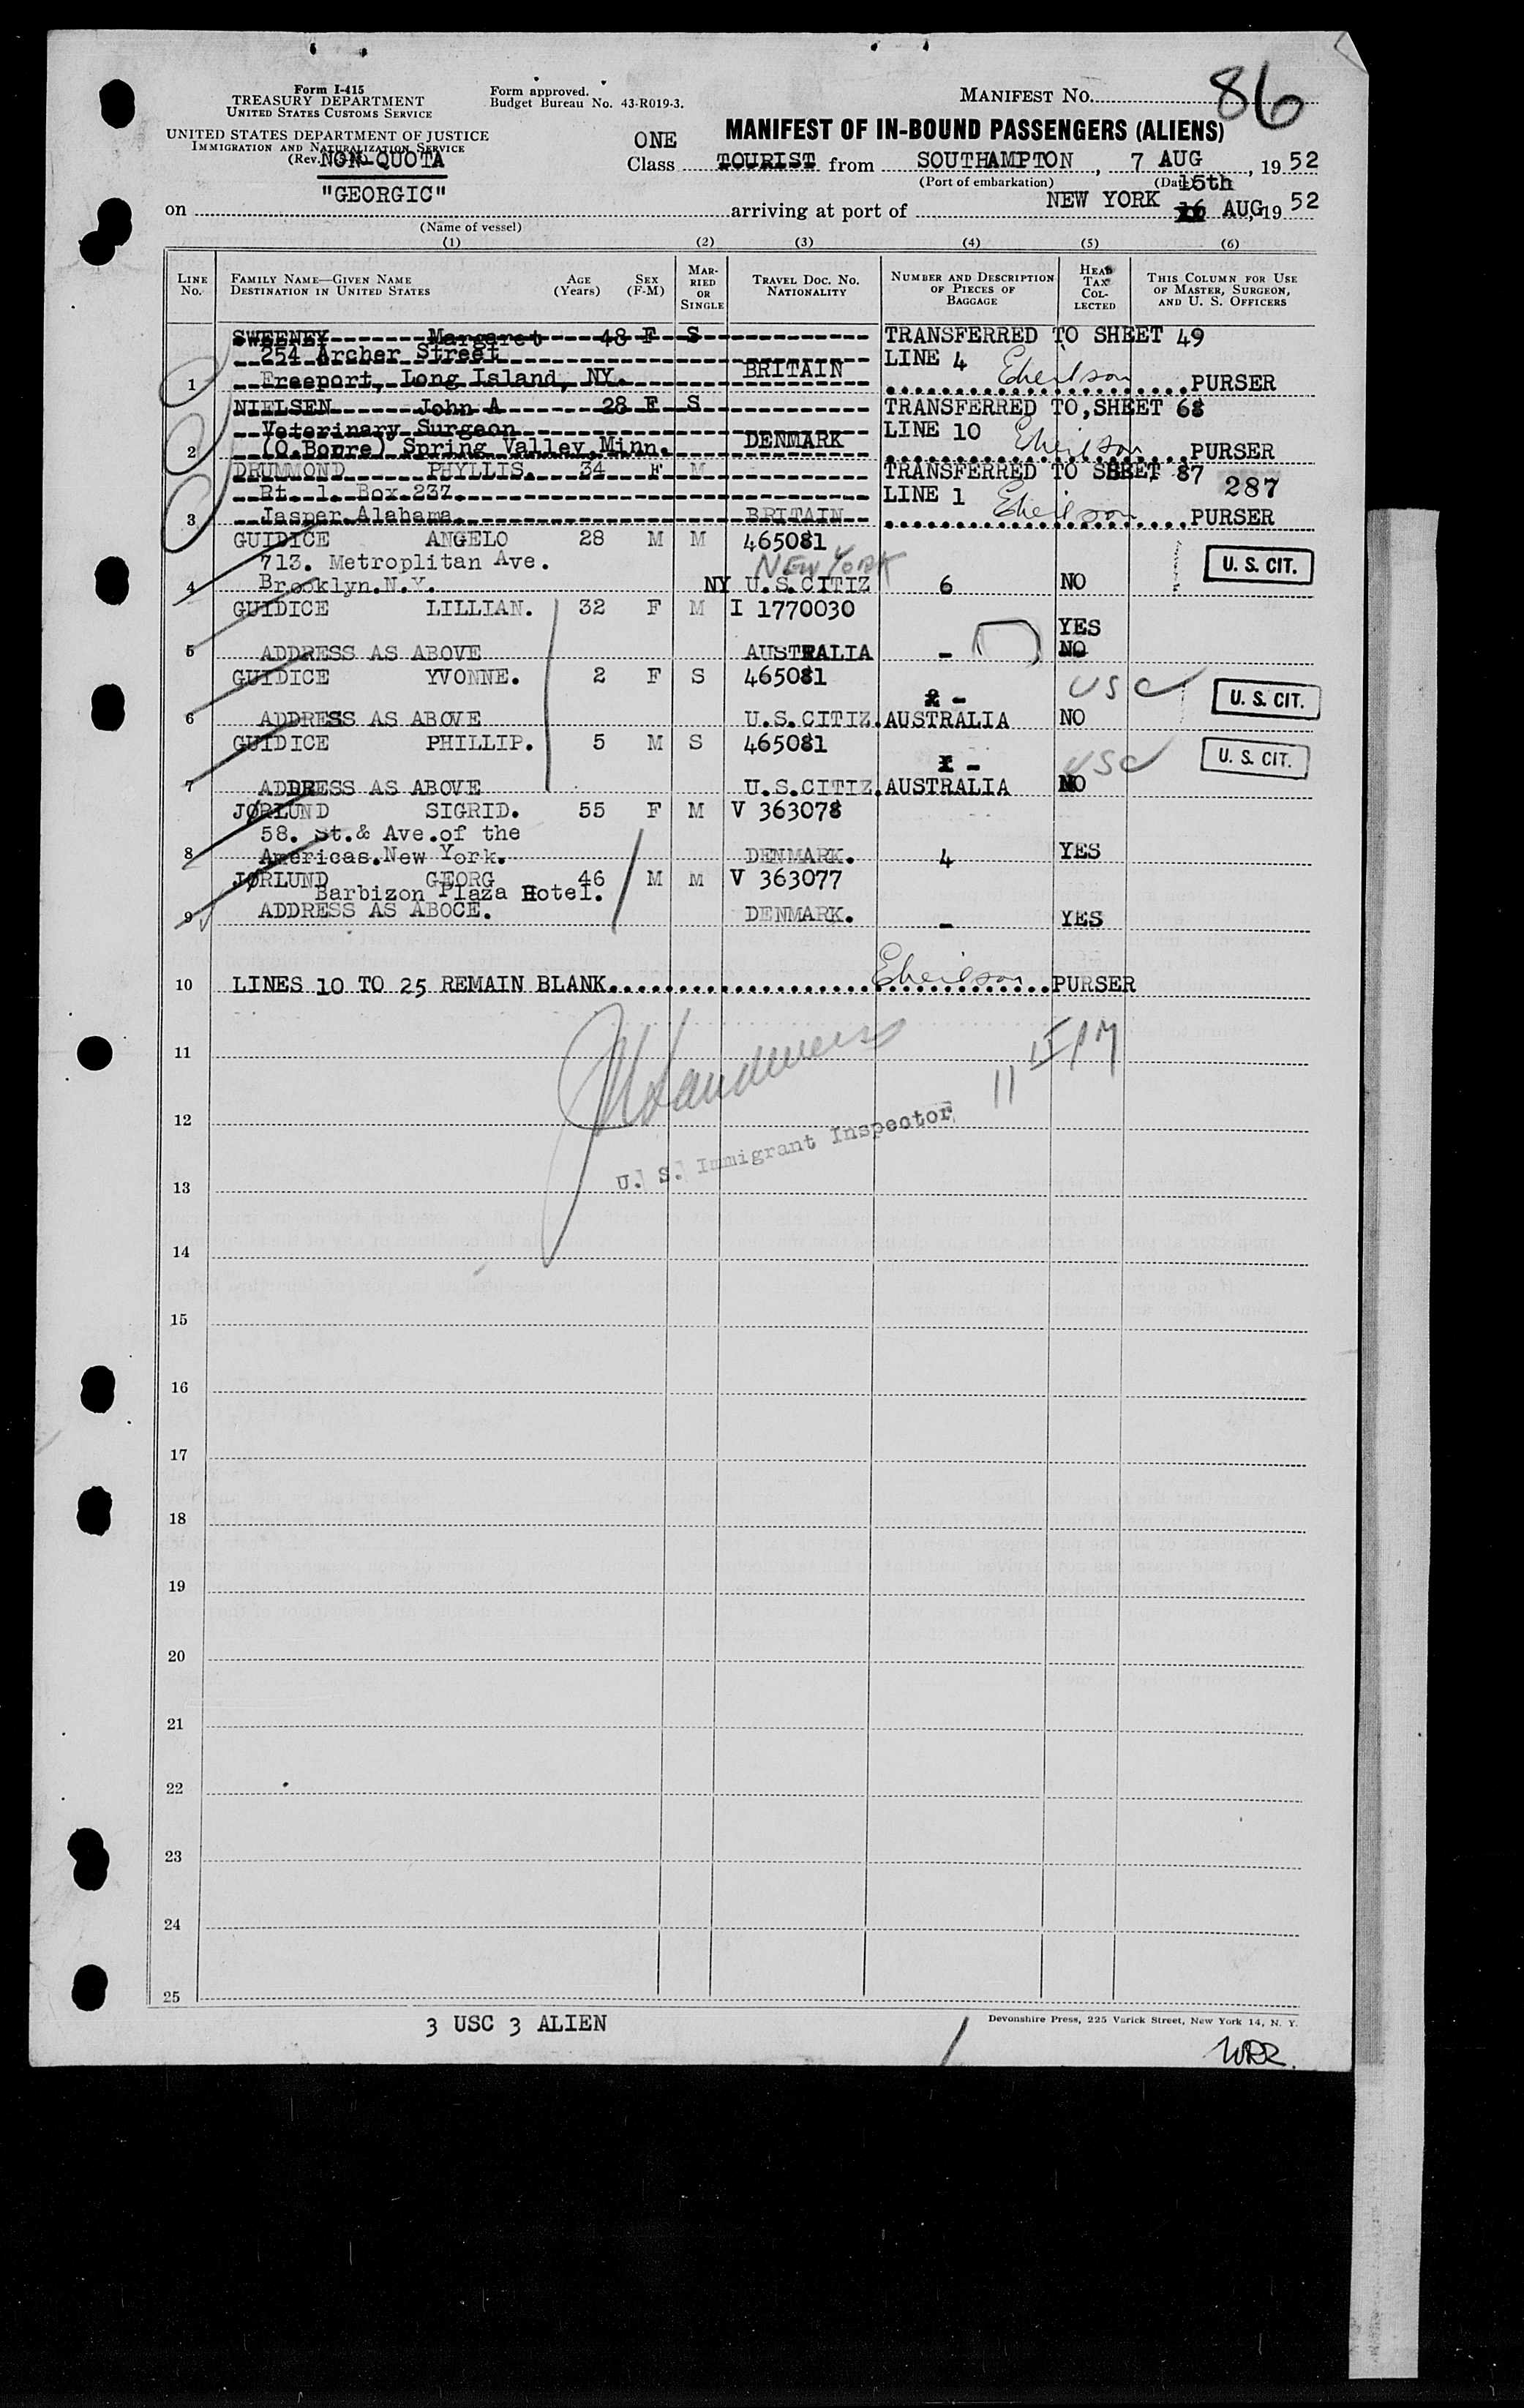 Form I-415
TREASURY DEPARTMENT
UNITED STATES CUSTOMS SERVICE
UNITED STATES DEPARTMENT OF JUSTICE
IMMIGRATION AND NATURALIZATION SERVICE
(Rev. NON-QUOTA
Form approved.
Budget Bureau No. 43-R019-3.
MANIFEST NO. 86
MANIFEST OF IN-BOUND PASSENGERS (ALIENS)
ONE
Class TOURIST from SOUTHAMPTON, 7 AUG, 1952
(Port of embarkation) (Date) 15th
on "GEORGIC" arriving at port of NEW YORK 16 AUG 1952
(Name of vessel)
(1) (2) (3) (4) (5) (6)
LINE NO. FAMILY NAME—GIVEN NAME DESTINATION IN UNITED STATES AGE (Years) SEX (F-M) MARRIED OR SINGLE TRAVEL DOC. NO. NATIONALITY NUMBER AND DESCRIPTION OF PIECES OF BAGGAGE HEAD TAX COLLECTED THIS COLUMN FOR USE OF MASTER, SURGEON, AND U. S. OFFICERS
SWEENEY Margaret 48 F S TRANSFERRED TO SHEET 49
254 Archer Street LINE 4
1 Freeport, Long Island, NY. BRITAIN PURSER
NIELSEN John A 28 F S TRANSFERRED TO, SHEET 68
Veterinary Surgeon LINE 10
2 Spring Valley, Minn. DENMARK PURSER
DRUMMOND PHYLLIS. 34 F M TRANSFERRED TO SHEET 87 287
Rt. 1. Box.237. LINE 1
3 Jasper Alabama. BRITAIN PURSER
GUIDICE ANGELO 28 M M 465081
713. Metroplitan Ave. NEW YORK U. S. CIT.
4 Brooklyn.N.Y. NY U.S.CITIZ 6 NO
GUIDICE LILLIAN. 32 F M I 1770030
YES
5 ADDRESS AS ABOVE AUSTRALIA - NO
GUIDICE YVONNE. 2 F S 465081 USC U. S. CIT.
2 -
6 ADDRESS AS ABOVE U.S.CITIZ.AUSTRALIA NO
GUIDICE PHILLIP. 5 M S 465081 USC U. S. CIT.
1 -
7 ADDRESS AS ABOVE U.S.CITIZ.AUSTRALIA NO
JØRLUND SIGRID. 55 F M V 363078
58. St.& Ave.of the
8 Americas.New York. DENMARK. 4 YES
JØRLUND GEORG 46 M M V 363077
Barbizon Plaza Hotel.
9 ADDRESS AS ABOCE. DENMARK. - YES
10 LINES 10 TO 25 REMAIN BLANK PURSER
11
12
U. S. Immigrant Inspector
13
14
15
16
17
18
19
20
21
22
23
24
25
3 USC 3 ALIEN
Devonshire Press, 225 Varick Street, New York 14, N. Y.